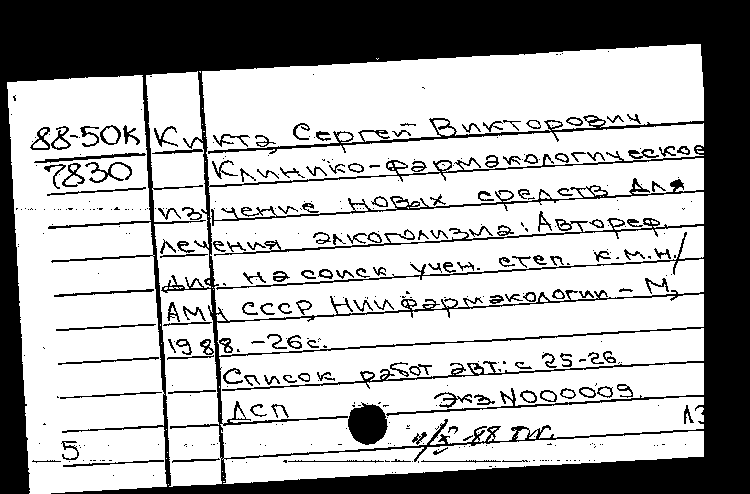 88-50К Кикта, Сергей Викторович.
7830 Клинико-фармакологическое
изучение новых средств для
лечения алкоголизма: Автореф.
дис. на соиск. учен. степ. к.м.н./
АМН СССР, НИИ фармакологии – М.,
1988. – 26 с.
Список работ авт.: с 25-26.
ДСП Экз. N000009.
88
5